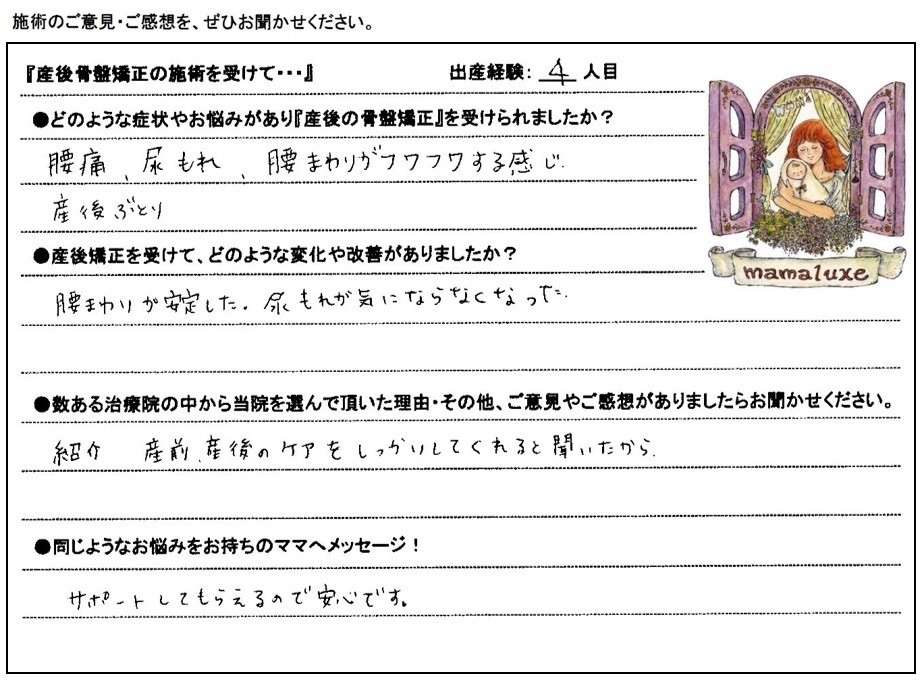 施術のご意見・ご感想を、ぜひお聞かせください。
『産後骨盤矯正の施術を受けて・・・』 出産経験: 4 人目
●どのような症状やお悩みがあり『産後の骨盤矯正』を受けられましたか？
腰痛、尿もれ、腰まわりがフワフワする感じ.
産後ぶとり
●産後矯正を受けて、どのような変化や改善がありましたか？
mamaluxe
腰まわりが安定した。尿もれが気にならなくなった.
●数ある治療院の中から当院を選んで頂いた理由・その他、ご意見やご感想がありましたらお聞かせください。
紹介 産前、産後のケアをしっかりしてくれると聞いたから.
●同じようなお悩みをお持ちのママへメッセージ！
サポートしてもらえるので安心です。